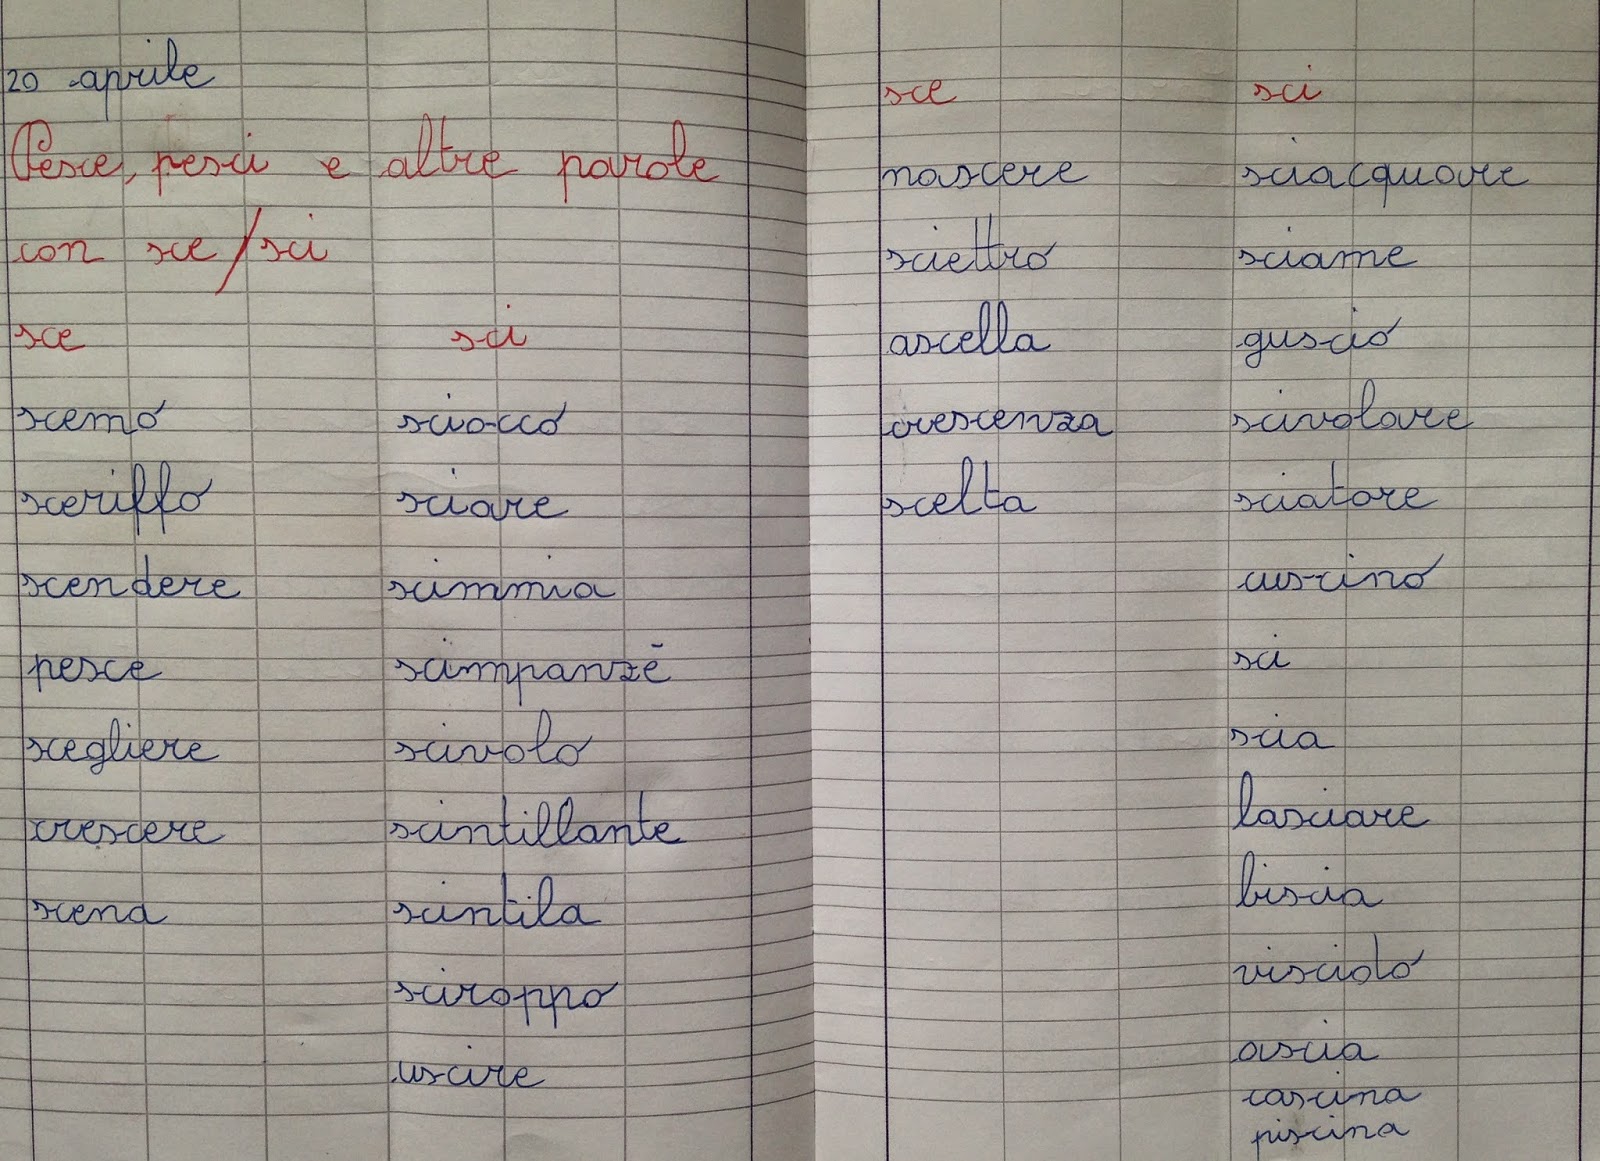 20 aprile
Pesce, pesci e altre parole
con sce/sci
sce sci
scemo sciocco
sceriffo sciare
scendere scimmia
pesce scimpanzé
scegliere scivolo
crescere scintillante
scena scintila
sciroppo
uscire
sce sci
nascere sciacquare
sciettro sciame
ascella guscio
crescenza scivolare
scelta sciatore
cuscino
sci
scia
lasciare
biscia
viscido
ascia
cascina
piscina